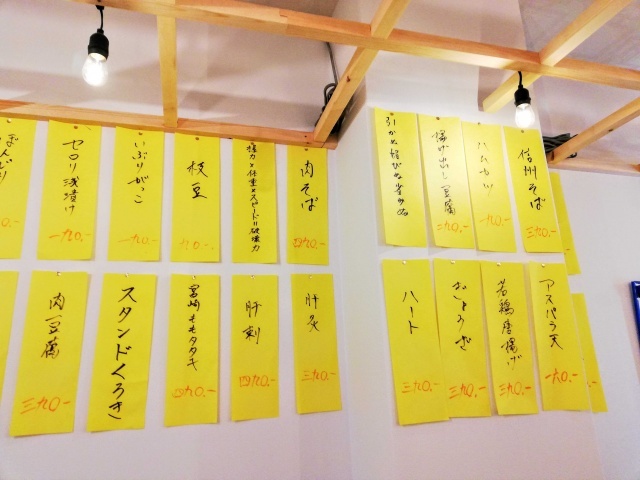 ぼんじり
セロリ浅漬け
一九〇.-
いぶりがっこ
一九〇.-
枝豆
一九〇.-
握力×体重×スピード=破壊力
肉そば
四九〇.-
引かぬ媚びぬ省みぬ
揚げ出し豆腐
二九〇.-
ハムカツ
一九〇.-
信州そば
三九〇.-
肉豆腐
三九〇.-
スタンドくろき
宮崎ももタタキ
四九〇.-
肝刺
四九〇.-
肝炙
三九〇.-
ハート
三九〇.-
おとうぎ
三九〇.-
若鶏唐揚げ
三九〇.-
アスパラ天
一六〇.-